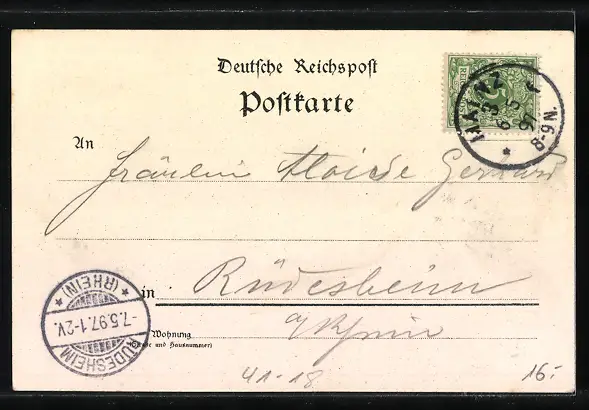 Deutsche Reichspost
Postkarte
MAINZ
6 5
97
8-9 N.
An
Fräulein Aloisde Gerhard
in Rüdesheim
a/Rhein
Wohnung
(Straße und Hausnummer)
RÜDESHEIM
* (RHEIN) *
-7.5.97.1-2V.
41-18
16.-